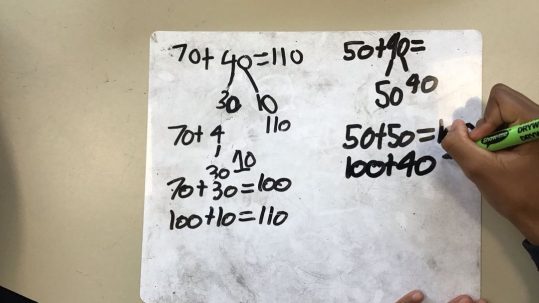 70+40=110
30 10
110
70+4
30 10
70+30=100
100+10=110
50+90=
50 40
50+50=1
100+40